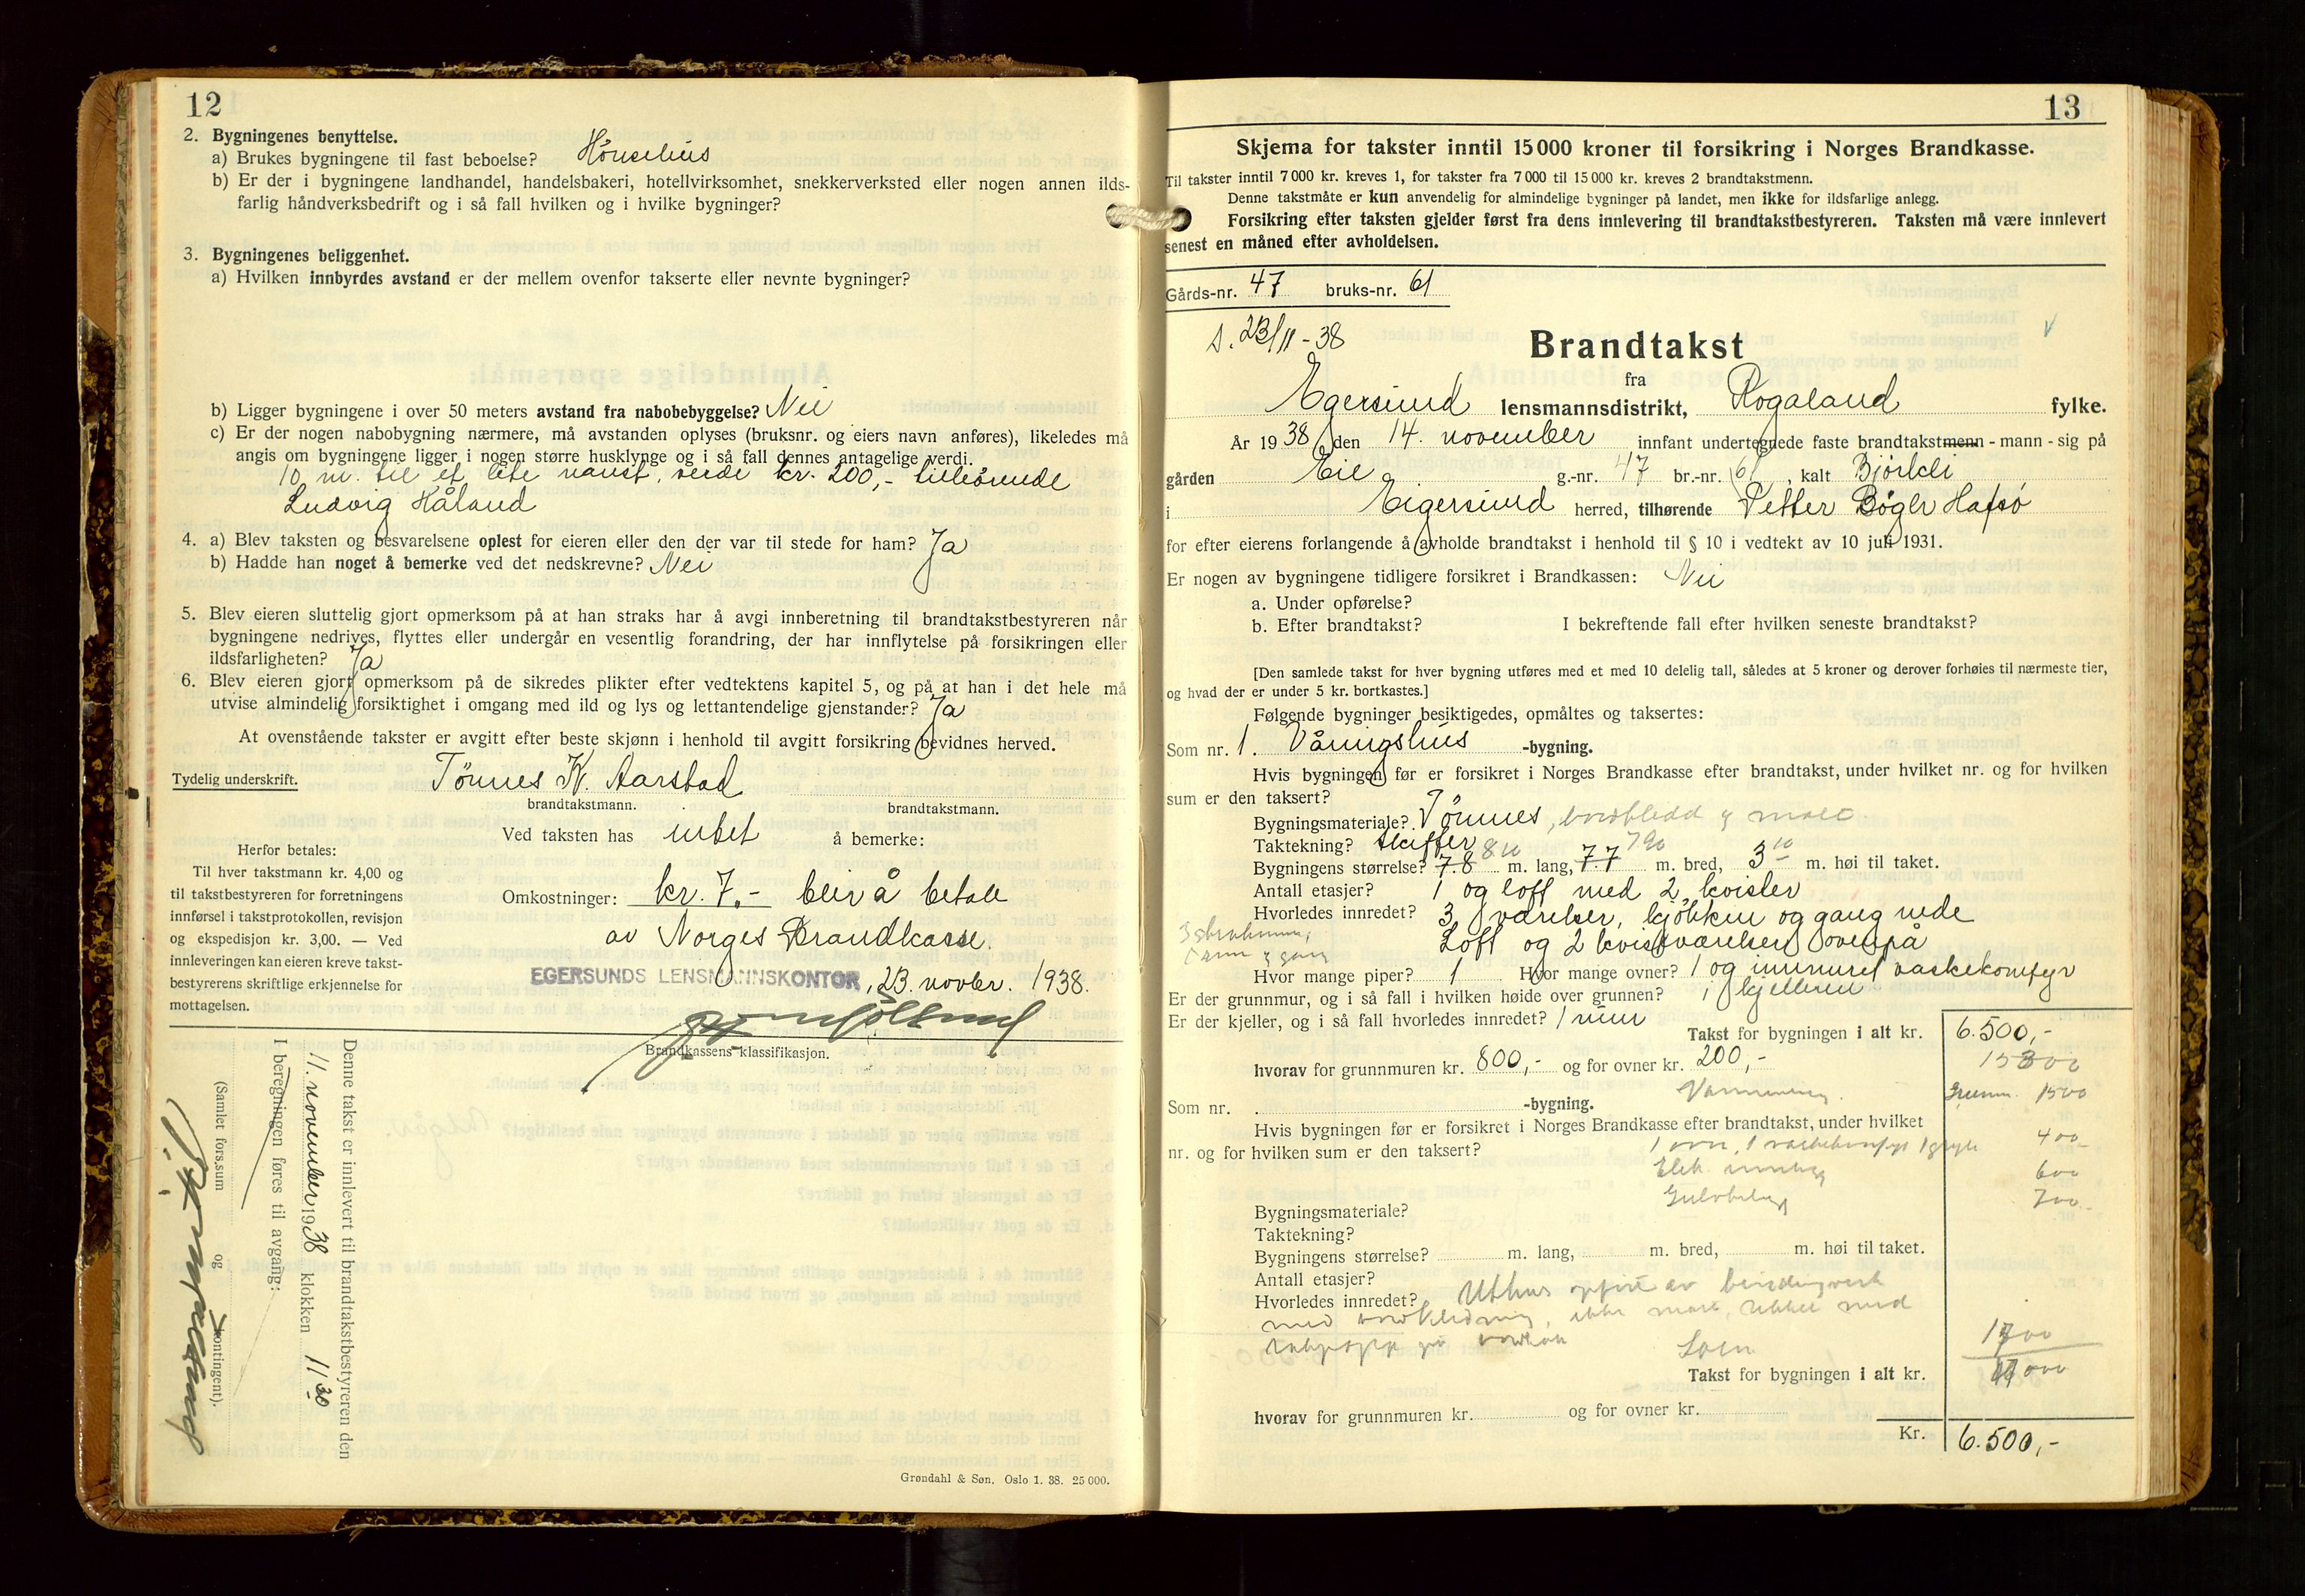 12
2. Bygningenes benyttelse.
a) Brukes bygningene til fast beboelse? Hønsehus
b) Er der i bygningene landhandel, handelsbakeri, hotellvirksomhet, snekkerverksted eller nogen annen ilds-
farlig håndverksbedrift og i så fall hvilken og i hvilke bygninger?
3. Bygningenes beliggenhet.
a) Hvilken innbyrdes avstand er der mellem ovenfor takserte eller nevnte bygninger?
b) Ligger bygningene i over 50 meters avstand fra nabobebyggelse? Nei
c) Er der nogen nabobygning nærmere, må avstanden oplyses (bruksnr. og eiers navn anføres), likeledes må
angis om bygningene ligger i nogen større husklynge og i så fall dennes antagelige verdi.
10 m. til et lite naust, verde kr. 200,- tilhørende
Ludvig Håland
4. a) Blev taksten og besvarelsene oplest for eieren eller den der var til stede for ham? Ja
b) Hadde han noget å bemerke ved det nedskrevne? Nei
5. Blev eieren sluttelig gjort opmerksom på at han straks har å avgi innberetning til brandtakstbestyreren når
bygningene nedrives, flyttes eller undergår en vesentlig forandring, der har innflytelse på forsikringen eller
ildsfarligheten? Ja
6. Blev eieren gjort opmerksom på de sikredes plikter efter vedtektens kapitel 5, og på at han i det hele må
utvise almindelig forsiktighet i omgang med ild og lys og lettantendelige gjenstander? Ja
At ovenstående takster er avgitt efter beste skjønn i henhold til avgitt forsikring bevidnes herved.
Tydelig underskrift. Tönnes K. Aarstad
brandtakstmann. brandtakstmann.
Ved taksten has intet å bemerke:
Herfor betales:
Til hver takstmann kr. 4,00 og
til takstbestyreren for forretningens
innførsel i takstprotokollen, revisjon
og ekspedisjon kr. 3,00. — Ved
innleveringen kan eieren kreve takst-
bestyrerens skriftlige erkjennelse for
mottagelsen.
Omkostninger: kr. 7.- blir å betale
av Norges Brandkasse.
EGERSUNDS LENSMANNSKONTOR, 23. novbr. 1938.
Brandkassens klassifikasjon.
Denne takst er innlevert til brandtakstbestyreren den
11. november 1938 klokken 11 30
I beregningen føres til avgang:
(Samlet fors.sum og kontingent).
Grøndahl & Søn. Oslo 1. 38. 25 000.
13
Skjema for takster inntil 15 000 kroner til forsikring i Norges Brandkasse.
Til takster inntil 7 000 kr. kreves 1, for takster fra 7 000 til 15 000 kr. kreves 2 brandtakstmenn.
Denne takstmåte er kun anvendelig for almindelige bygninger på landet, men ikke for ildsfarlige anlegg.
Forsikring efter taksten gjelder først fra dens innlevering til brandtakstbestyreren. Taksten må være innlevert
senest en måned efter avholdelsen.
Gårds-nr. 47 bruks-nr. 61
23/11-38
Brandtakst
fra
Egersund lensmannsdistrikt, Rogaland fylke.
År 1938, den 14. november innfant undertegnede faste brandtakstmenn - mann - sig på
gården Eie g.-nr. 47 br.-nr. 61, kalt Bjørkli
i Eigersund herred, tilhørende Petter Bøgler Hafsø
for efter eierens forlangende å avholde brandtakst i henhold til § 10 i vedtekt av 10 juli 1931.
Er nogen av bygningene tidligere forsikret i Brandkassen: Nei
a. Under opførelse?
b. Efter brandtakst? I bekreftende fall efter hvilken seneste brandtakst?
[Den samlede takst for hver bygning utføres med et med 10 delelig tall, således at 5 kroner og derover forhøies til nærmeste tier,
og hvad der er under 5 kr. bortkastes.]
Følgende bygninger besiktigedes, opmåltes og taksertes:
Som nr. 1. Våningshus -bygning.
Hvis bygningen før er forsikret i Norges Brandkasse efter brandtakst, under hvilket nr. og for hvilken
sum er den taksert?
Bygningsmateriale? Tømmer, bordkledd og malt
Taktekning? Skiffer
Bygningens størrelse? 7.8 810 m. lang, 7.7 790 m. bred, 3 10 m. høi til taket.
Antall etasjer? 1 og loft med 2 kvister
Hvorledes innredet? 3 værelser, kjøkken og gang nede
Loft og 2 kvistværelser ovenpå
Hvor mange piper? 1 Hvor mange ovner? 1 og innmuret vaskekomfyr
Er der grunnmur, og i så fall i hvilken høide over grunnen? i kjelleren
Er der kjeller, og i så fall hvorledes innredet? 1 rum
Takst for bygningen i alt kr. 6.500,-
hvorav for grunnmuren kr. 800,- og for ovner kr. 200,-
Som nr. -bygning. 1500
Hvis bygningen før er forsikret i Norges Brandkasse efter brandtakst, under hvilket
nr. og for hvilken sum er den taksert?
400
600
700
Bygningsmateriale?
Taktekning?
Bygningens størrelse? m. lang, m. bred, m. høi til taket.
Antall etasjer?
Hvorledes innredet? Uthus opført av bindingsverk
med bordkledning, ikke malt, tekket med
takpapp på bordtak
Takst for bygningen i alt kr.
hvorav for grunnmuren kr. og for ovner kr.
Kr. 6.500,-